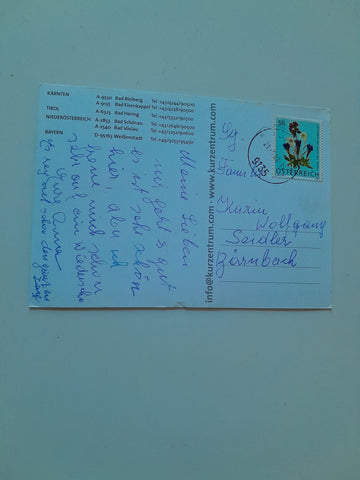 KÄRNTEN
A-9530 Bad Bleiberg Tel. +43/4244/90500
A-9135 Bad Eisenkappel Tel. +43/4238/90500
TIROL
A-6323 Bad Häring Tel. +43/5332/90500
NIEDERÖSTERREICH
A-2853 Bad Schönau Tel. +43/2646/90500
A-2540 Bad Vöslau Tel. +43/2252/90600
BAYERN
D-95163 Weißenstadt Tel. +49/9253/95450
Meine Lieben
mir geht's gut
es ist sehr schön
hier, aber ich
freue mich schon
sehr auf ein Wiedersehen
Eure Oma
Es regnet schon den ganzen
info@kurzentrum.com • www.kurzentrum.com
55
ÖSTERREICH
9135
Fam
Karin
Wolfgang
Seidler
Zörnbach